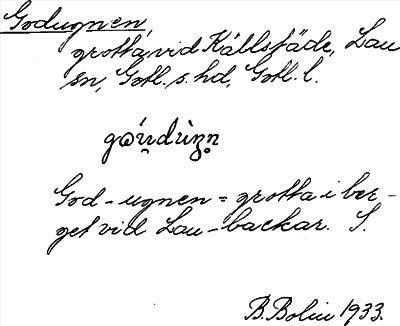 Godugnen,
grotta, vid Källstäde, Lau
sn, Gotl. s. hd, Gotl. l.
God-ugnen = grotta i ber-
get vid Lau-backar. S.
B. Bolin 1933.